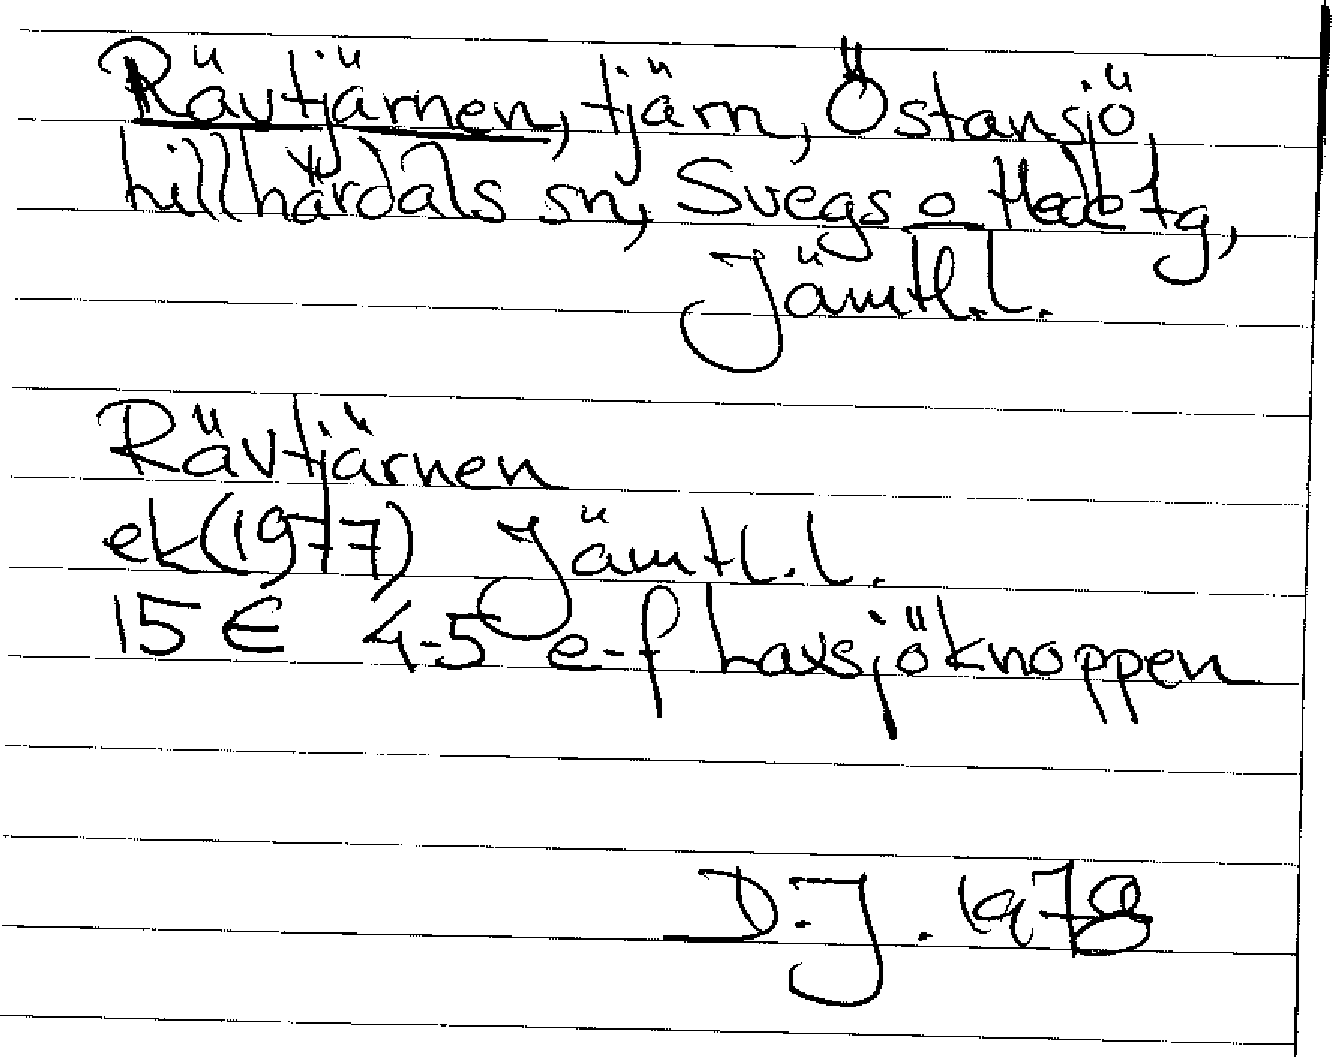 Rävtjärnen, tjärn, Östansjö,
Lillhärdals sn, Svegs o Hede tg,
Jämtl.l.
Rävtjärnen
ek(1977) Jämtl.l.
15 E 4-5 e-f Laxsjöknoppen
D.J. 1978